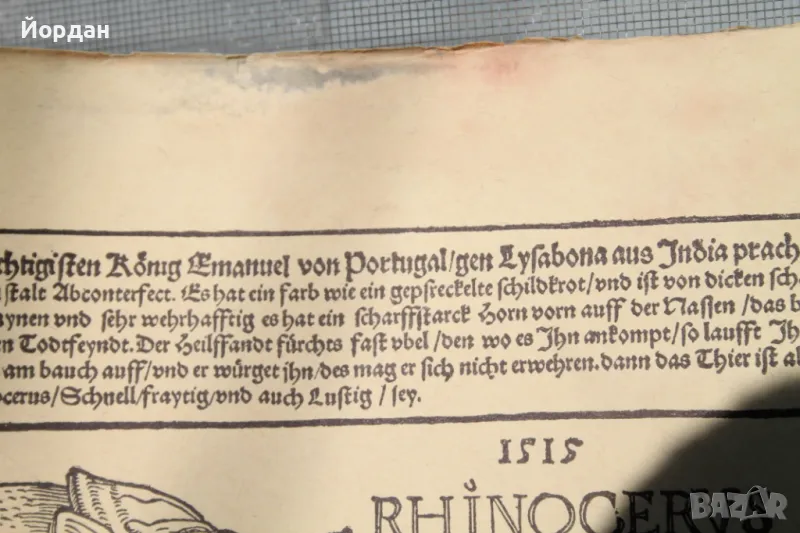 Йордан
chtigisten König Emanuel von Portugal/gen Lysabona aus India prach
stalt Abconterfect. Es hat ein farb wie ein gepsreckelte schildkrot/vnd ist von dicken sch
ynen vnd sehr wehrhafftig es hat ein scharffstarck Horn vorn auff der Nassen/das b
en Todtfeyndt. Der Heilffandt fürchts fast vbel/den wo es Ihn ankompt/so laufft Jh
am bauch auff/vnd er würget ihn/des mag er sich nicht erwehren. dann das Thier ist al
ocerus/Schnell/fraytig/vnd auch Lustig/sey.
1515
RHINOCERVS
BAZAR